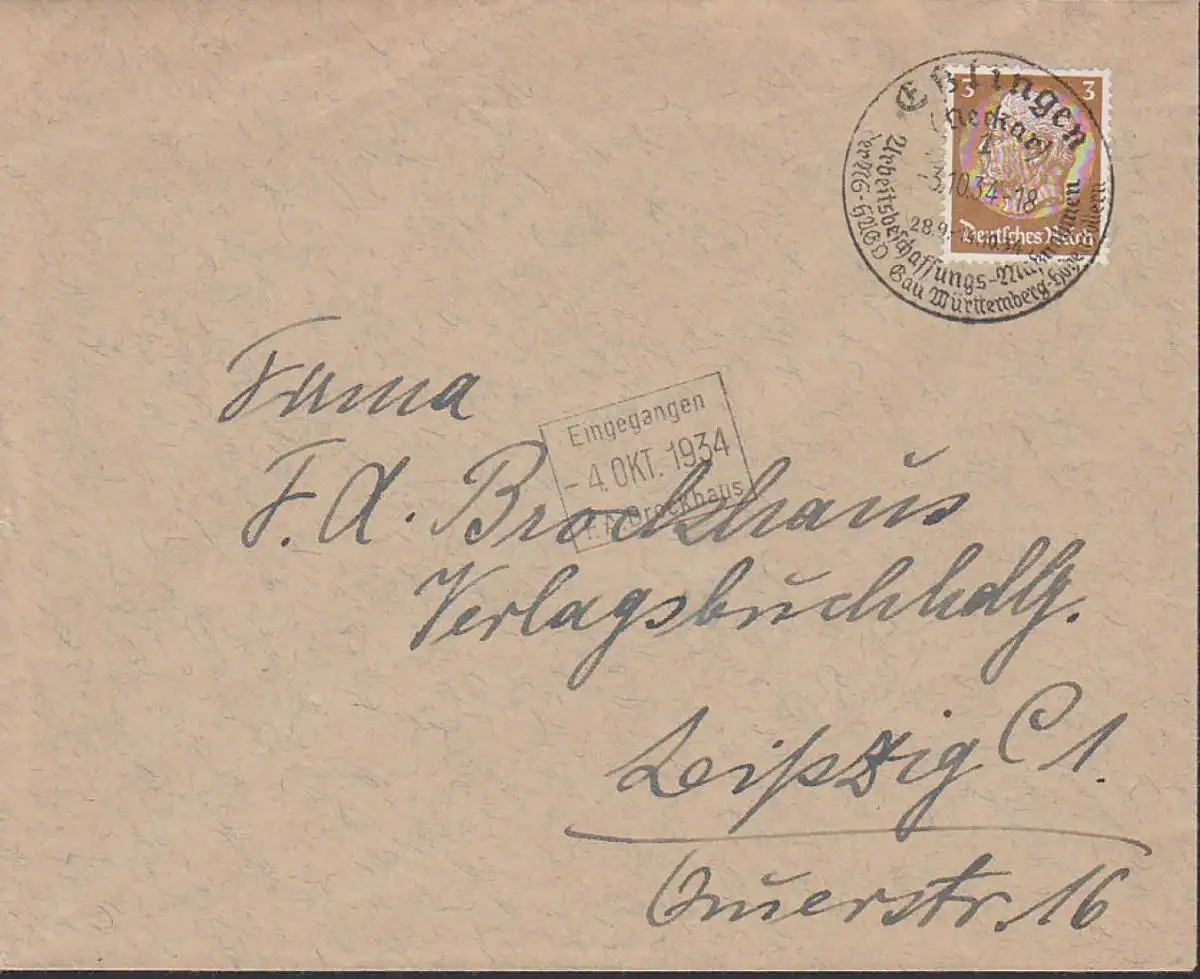 3 3
Eßlingen
(Neckar)
-3.10.34-18
28.9.
Arbeitsbeschaffungs-Maßnahmen
der NS-HAGO Gau Württemberg-Hohenzollern
Deutsches Reich
Firma
Eingegangen
-4. OKT. 1934
F.A. Brockhaus
F. A. Brockhaus
Verlagsbuchhdlg.
Leipzig C 1.
Querstr. 16